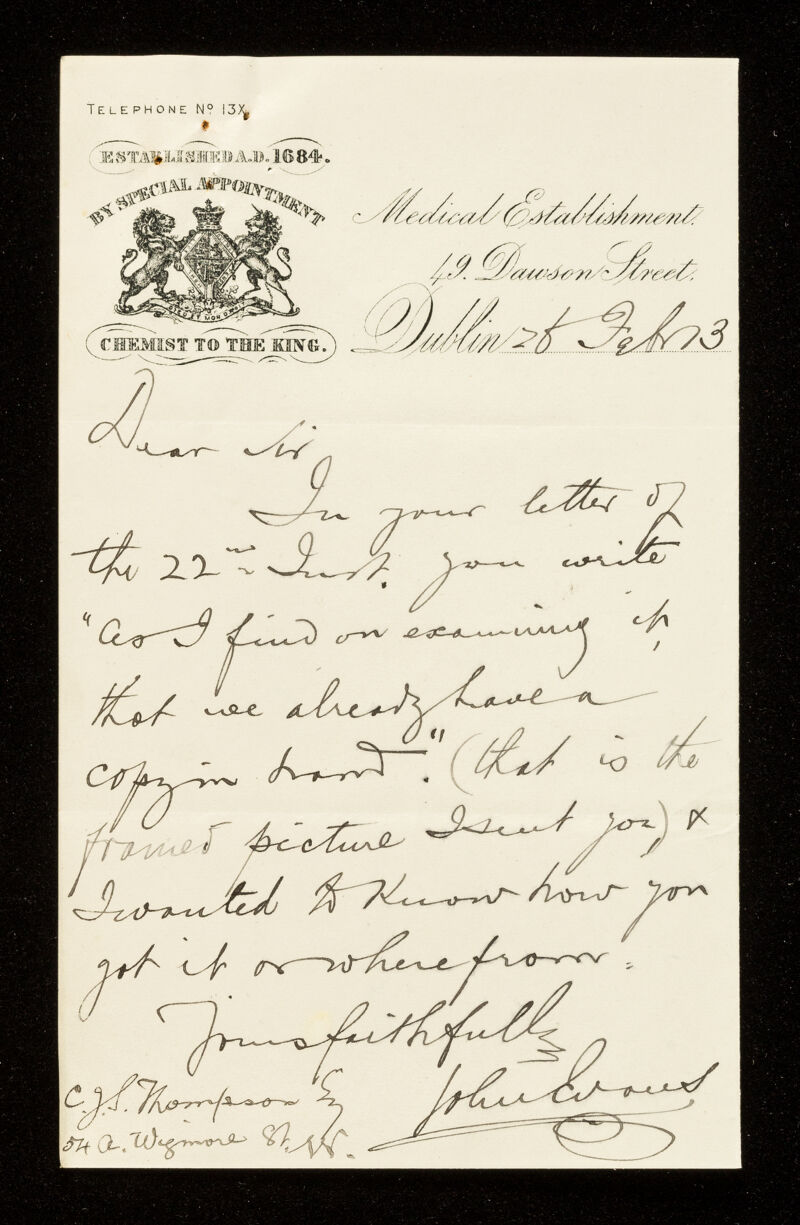 TELEPHONE Nº 13X
ESTABLISHED A.D. 1684.
BY SPECIAL APPOINTMENT
CHEMIST TO THE KING.
Medical Establishment.
49. Dawson Street.
Dublin 26 Feb 13
Dear Sir
In your letter of
the 22nd Inst. you write
"as I find on examining it,
that we already have a
copy in hand". (that is the
framed picture I sent you) &
I wanted to know how you
got it or where from.
Yours faithfully
John Evans
C.J.S. Thompson Esq
54 A. Wigmore St. W.